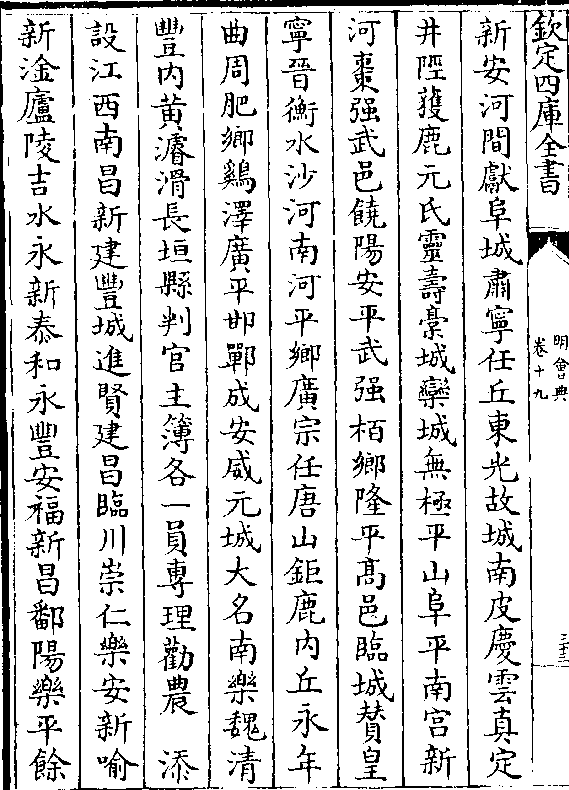 欽定四庫全書
明會典
卷十九
新安河間獻阜城肅寧任丘東光故城南皮慶雲真定
井陘獲鹿元氏靈壽藁城欒城無極平山阜平南宫新
河棗强武邑饒陽安平武强栢鄉隆平髙邑臨城賛皇
寧晉衡水沙河南河平鄉廣宗任唐山鉅鹿内丘永年
曲周肥鄉鷄澤廣平邯鄲成安威元城大名南樂魏清
豐内黄濬滑長垣縣判官主簿各一員專理勸農　添
設江西南昌新建豐城進賢建昌臨川崇仁樂安新喻
新淦廬陵吉水永新泰和永豐安福新昌鄱陽樂平餘